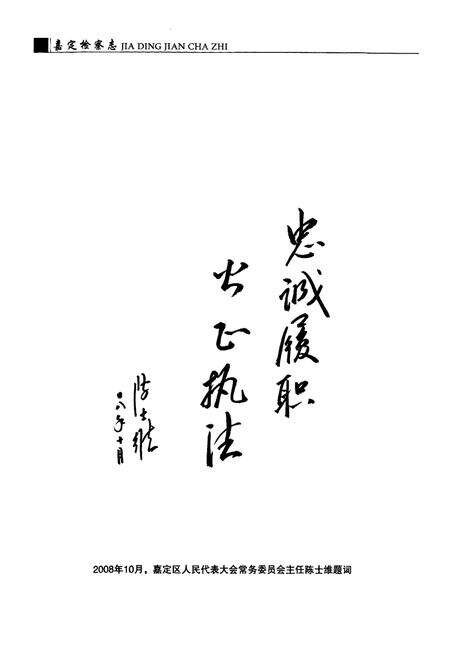 嘉定检察志 JIA DING JIAN CHA ZHI
忠诚履职
公正执法
陈士维
二〇〇八年十月
2008年10月，嘉定区人民代表大会常务委员会主任陈士维题词